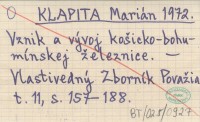 KLAPITA Marián 1972.
Vznik a vývoj košicko-bohu-
mínskej železnice. —
Vlastivedný Zborník Považia
t. 11, s. 157-188.
BT/028/0927